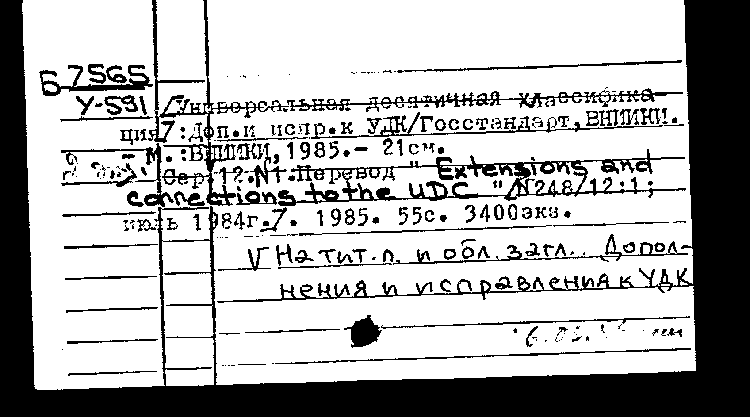 Б 7565
У-591
/Универсальная десятичная классифика-
ция/: Доп. и испр. к УДК/Госстандарт, ВНИИКИ.
- М.: ВНИИКИ, 1985. - 21см.
2 экз. Сер 12. №1. Перевод " Extensions and
connections to the UDC "/N248/12:1;
июль 1984г./. 1985. 55с. 3400экз.
V На тит. л. и обл. загл.. Допол-
нения и исправления к УДК